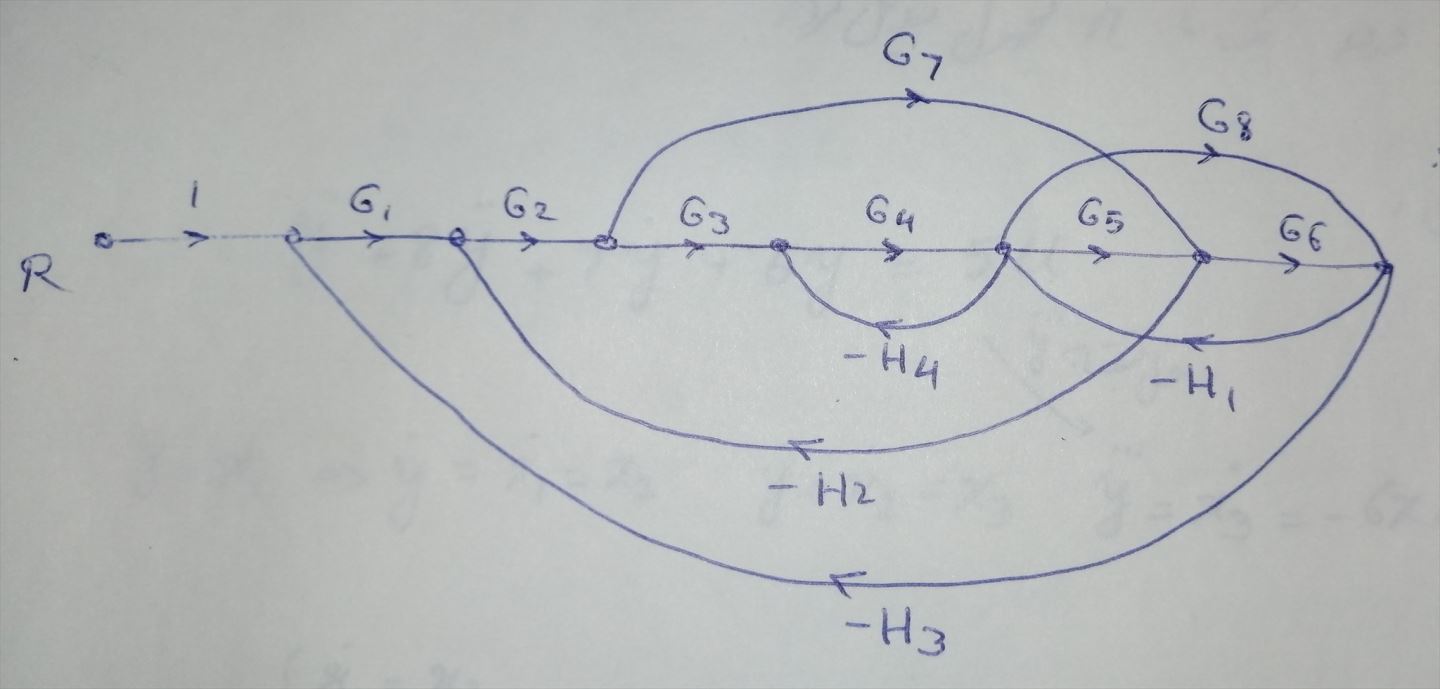 G7
G8
1 G1 G2 G3 G4 G5 G6
R
-H4
-H1
-H2
-H3